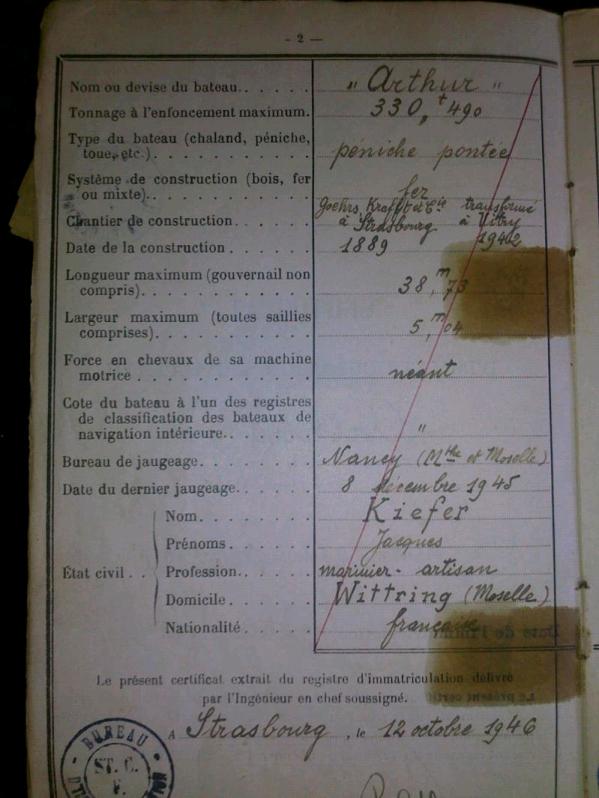 - 2 —
Nom ou devise du bateau. . . . . . " Arthur "
Tonnage à l'enfoncement maximum. 330,ᵗ490
Type du bateau (chaland, péniche,
toue, etc.). . . . . . . . . . . péniche pontée
Système de construction (bois, fer
ou mixte). . . . . . . . . . . fer
Chantier de construction. . . . . . Goehrs, Krafft et Cie à Strasbourg transformé à Vitry
Date de la construction. . . . . . 1889 1942
Longueur maximum (gouvernail non
compris). . . . . . . . . . . . 38,ᵐ73
Largeur maximum (toutes saillies
comprises). . . . . . . . . . . 5,ᵐ04
Force en chevaux de sa machine
motrice . . . . . . . . . . . . néant
Cote du bateau à l'un des registres
de classification des bateaux de
navigation intérieure. . . . . . . "
Bureau de jaugeage. . . . . . . . Nancy (Mthe et Moselle)
Date du dernier jaugeage. . . . . . 8 décembre 1945
État civil . .
Nom. . . . . . . Kiefer
Prénoms. . . . . . Jacques
Profession. . . . . marinier-artisan
Domicile. . . . . . Wittring (Moselle)
Nationalité. . . . . française
Le présent certificat extrait du registre d'immatriculation délivré
par l'Ingénieur en chef soussigné.
A Strasbourg, le 12 octobre 1946
BUREAU
ST. C.
F.